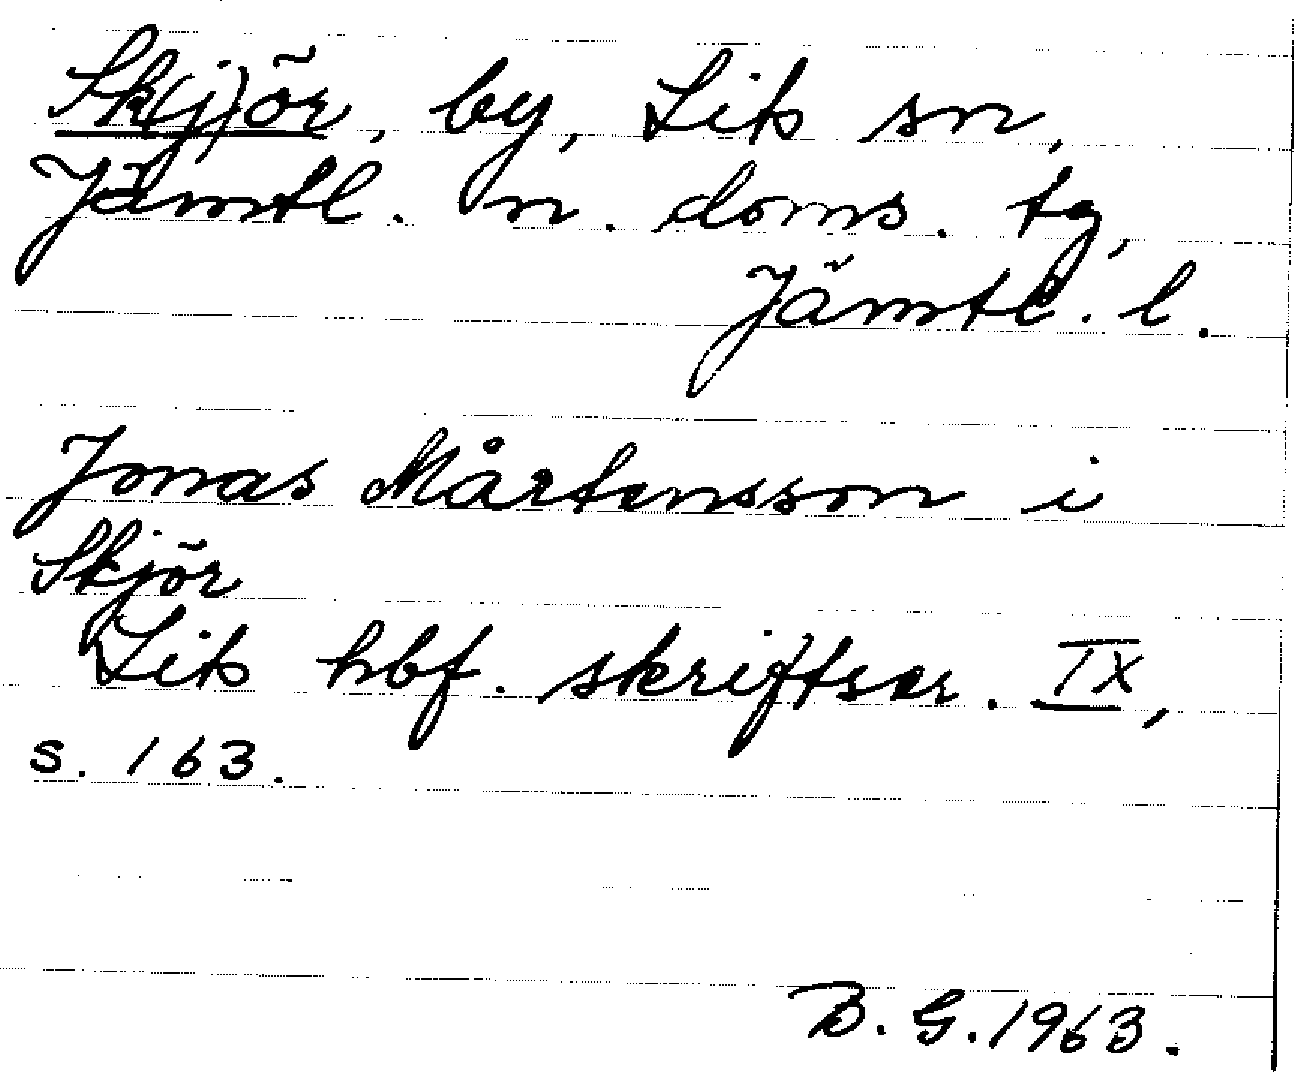 Sk(j)ör, by, Lits sn,
Jämtl. n. doms. tg,
Jämtl. l.
Jonas Mårtensson i
Skjör
Lits hbf. skriftser. IX,
s. 163.
B. G. 1963.